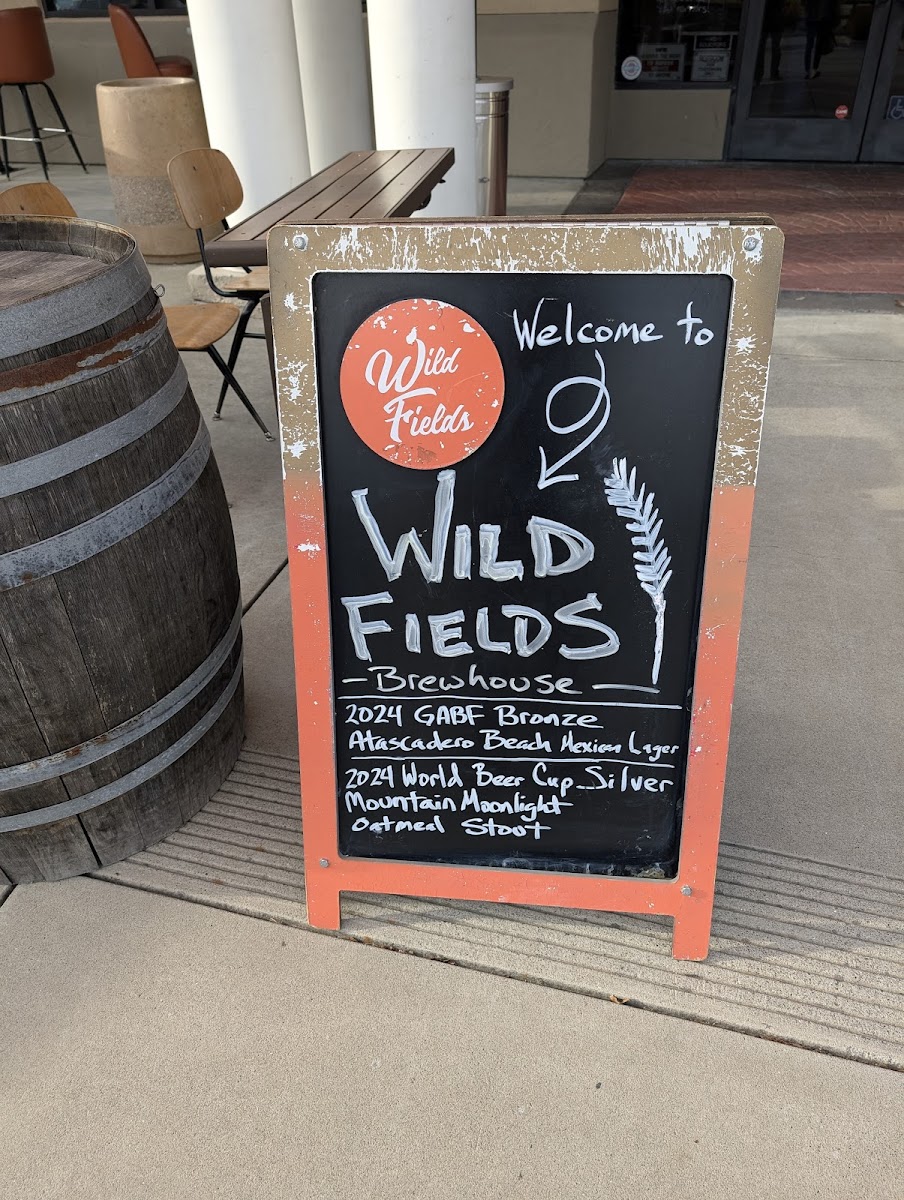 Wild
Fields
Welcome to
WILD
FIELDS
-Brewhouse-
2024 GABF Bronze
Atascadero Beach Mexican Lager
2024 World Beer Cup Silver
Mountain Moonlight
Oatmeal Stout